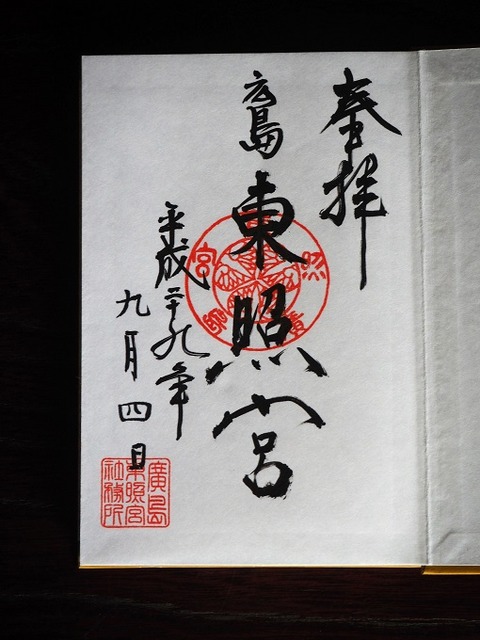 奉拝
広島東照宮
平成二十九年
九月四日
廣島
東照宮
社務所